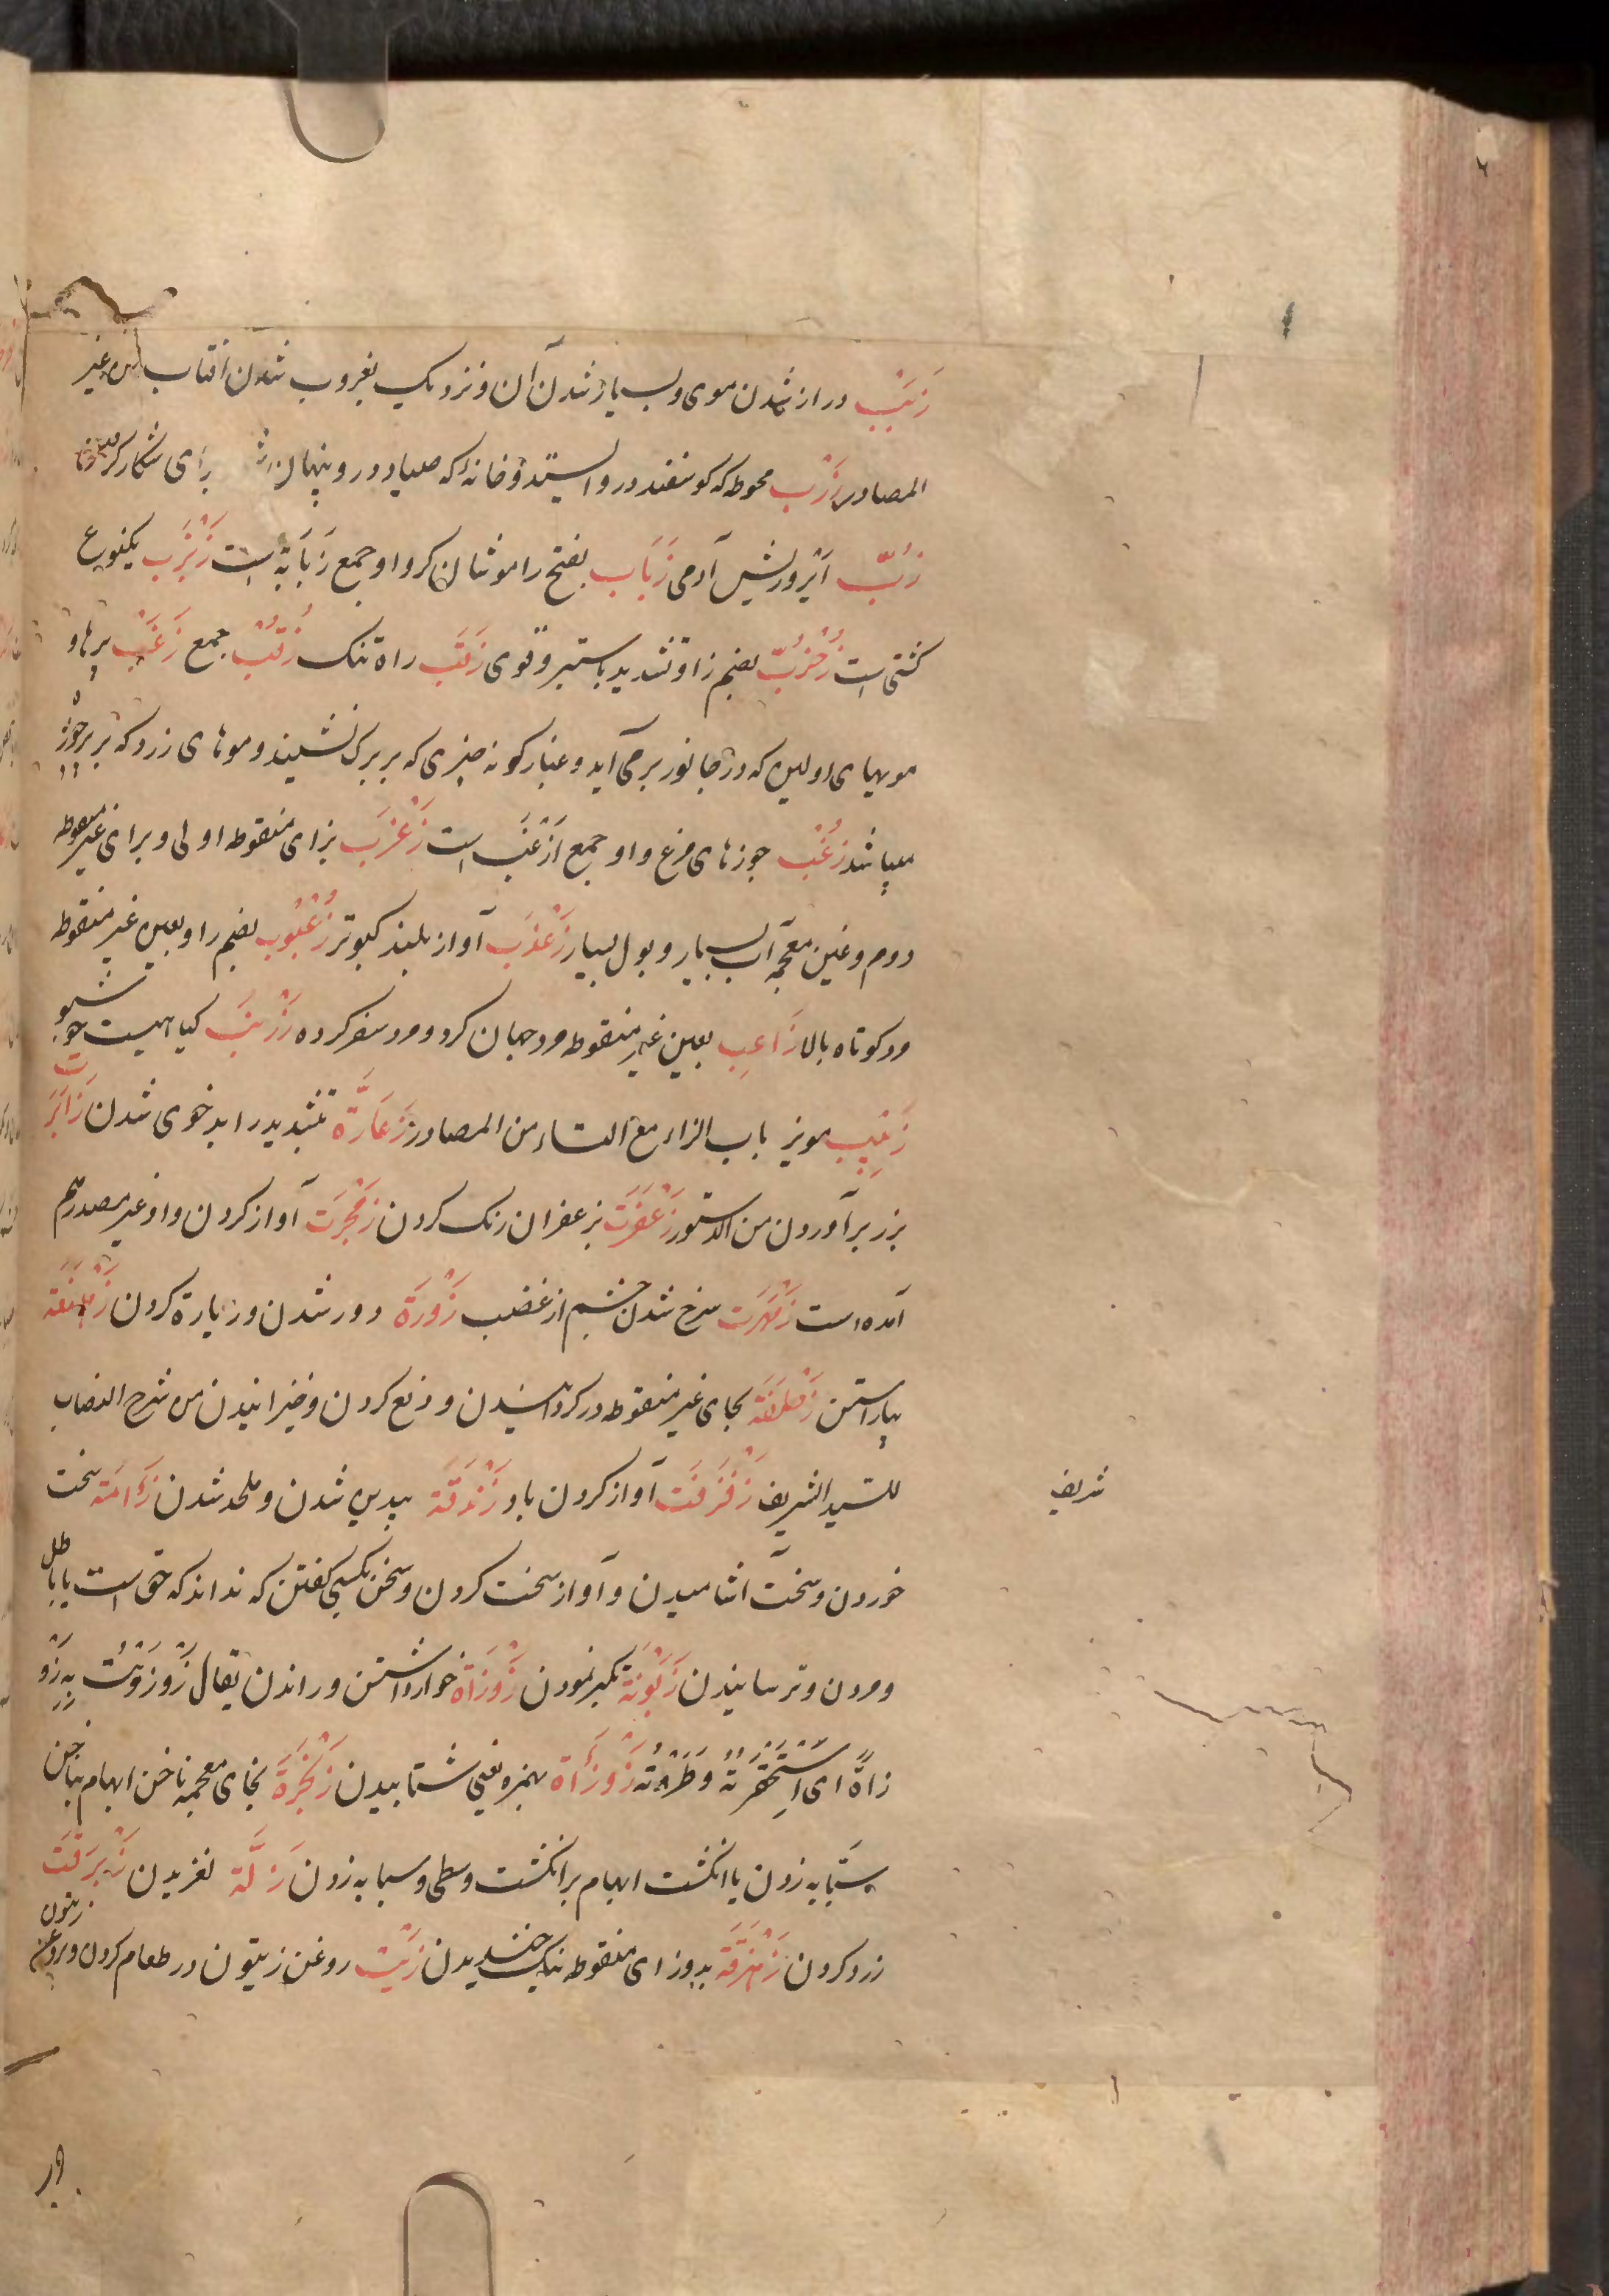 زَبَبْ دراز شدن موی و بسیار شدن آن و نزدیک بغروب شدن آفتاب من غیر
المصادر زَرْب محوطه که کوسفند درو ایستد و خانهٔ که صیاد درو پنهان برای شکار کردن
زُبّ ایر و ریش آدمی زَبَاب بفتح را موشان کر و او جمع زَبَابَة است زَبْزَب یکنوع
کشتی است زُخْزُبّ بضم زا و تشدید با ستبر و قوی زَقَب راه تنک زُقُبْ جمع زَغَبْ پرها و
مویهای اولین که در جانور برمی آید و غبار کونه چیزی که بر برک نشیند و موهای زرد که بر پر جوزه
میباشد زُغْب جوزهای مرغ و او جمع اَزْغَب است زَغْرَب بزای منقوطه اولی و برای غیر منقوطه
دوم و غین معجمه آب بسیار و بول بسیار زَغْدَب آواز بلند کبوتر زُعْبُوب بضم را و بعین غیر منقوطه
مرد کوتاه بالا زَاعِب بعین غیر منقوطه مرد جهان کرد و مرد سفر کرده زَرْنَب کیاهیست خوشبو
زَبِیب مویز باب الزاء مع التاء من المصادر زَعَارَّة بتشدید را بدخوی شدن
بزر برآوردن من الدستور زَعْفَرَت بزعفران رنک کردن زَمْجَرَت آواز کردن و از غیر مصدر هم
آمده است زَمْهَرَت سرخ شدن چشم از غضب زَوْرَة دور شدن و زیارة کردن
پیراستن بحای غیر منقوطه در کردانیدن و دفع کردن و خیزانیدن من شرح النصاب
للسید الشریف زَفْزَفَت آواز کردن باد زَنْدَقَة بیدین شدن و ملحد شدن زَأمَة سخت
شریف
خوردن و سخت آشامیدن و آواز سخت کردن و سخن بکسی کفتن که نداند که حق است یا باطل
و مردن و ترسانیدن زَبْوَنَة تکبر نمودن زَوْزَاة خوار داشتن و راندن یقال زَوْزَوْتُ بِهِ زَوْ
زَاةً ای اِسْتَحْقَرْتُهُ وَطَرَدْتُهُ زَوْزَأَة بهمزه یعنی شتابیدن زَنْجَرَة بخای معجمه ناخن ابهام بناخن
سبّابه زدن یا انکشت ابهام بر انکشت وسطی و سبابه زدن زَلَّة لغزیدن زَبْرَقَت
زرد کردن زَهْزَقَة بدو زای منقوطه نیک خندیدن زَیْت روغن زیتون در طعام کردن و بروغن زیتون